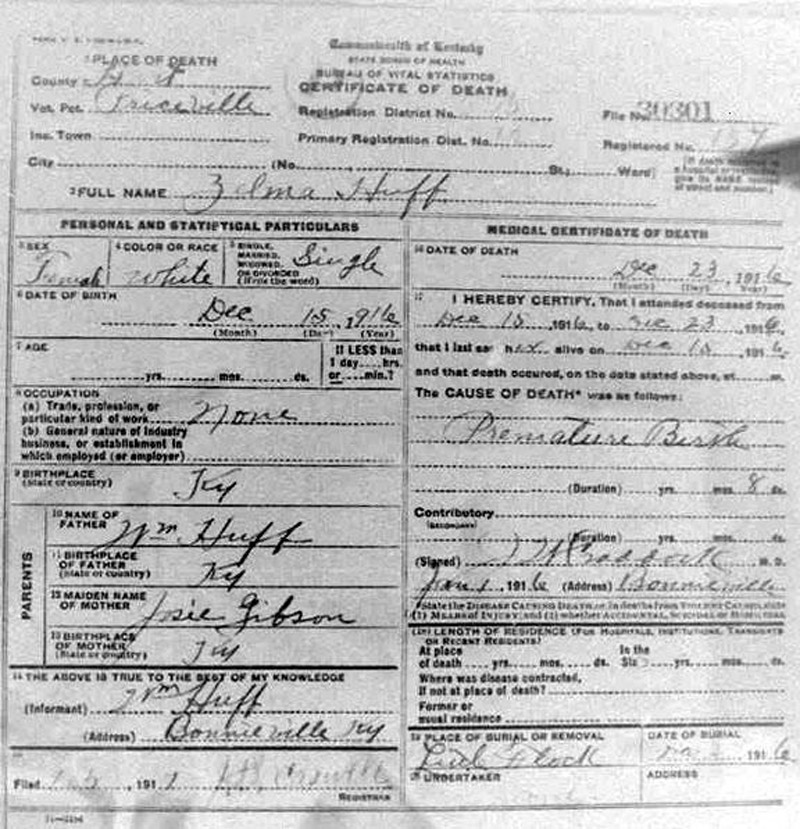 Commonwealth of Kentucky
STATE BOARD OF HEALTH
BUREAU OF VITAL STATISTICS
CERTIFICATE OF DEATH
1 PLACE OF DEATH
County Hart
Vot. Pct. Priceville
Inc. Town
City (No. St.; Ward)
Registration District No.
Primary Registration Dist. No.
File No. 30301
Registered No.
2 FULL NAME Zelma Huff
PERSONAL AND STATISTICAL PARTICULARS
3 SEX Female
4 COLOR OR RACE White
5 SINGLE, MARRIED, WIDOWED, OR DIVORCED (Write the word) Single
6 DATE OF BIRTH
Dec 15 1916
(Month) (Day) (Year)
7 AGE
yrs. mos. ds.
If LESS than 1 day....hrs. or....min.?
8 OCCUPATION
(a) Trade, profession, or particular kind of work None
(b) General nature of industry
business, or establishment in
which employed (or employer)
9 BIRTHPLACE
(State or country) Ky
PARENTS
10 NAME OF FATHER Wm Huff
11 BIRTHPLACE OF FATHER
(State or country) Ky
12 MAIDEN NAME OF MOTHER Josie Gibson
13 BIRTHPLACE OF MOTHER
(State or country) Ky
14 THE ABOVE IS TRUE TO THE BEST OF MY KNOWLEDGE
(Informant) Wm Huff
(Address) Bonnieville Ky
15
Filed 191
REGISTRAR
MEDICAL CERTIFICATE OF DEATH
16 DATE OF DEATH
Dec 23 1916
(Month) (Day) (Year)
17 I HEREBY CERTIFY, That I attended deceased from
Dec 15, 1916, to Dec 23, 1916,
that I last saw her alive on Dec 15, 1916,
and that death occured, on the date stated above, at m.
The CAUSE OF DEATH* was as follows:
Premature Birth
(Duration) yrs. mos. 8 ds.
Contributory
(SECONDARY)
(Duration) yrs. mos. ds.
(Signed) Craddock M. D.
Jan 1, 1916 (Address) Bonnieville
*State the DISEASE CAUSING DEATH, or, in deaths from VIOLENT CAUSES, state
(1) MEANS OF INJURY; and (2) whether ACCIDENTAL, SUICIDAL or HOMICIDAL
(18) LENGTH OF RESIDENCE (FOR HOSPITALS, INSTITUTIONS, TRANSIENTS
OR RECENT RESIDENTS)
At place In the
of death yrs. mos. ds. State yrs. mos. ds.
Where was disease contracted,
if not at place of death?
Former or
usual residence
19 PLACE OF BURIAL OR REMOVAL
DATE OF BURIAL
1916
20 UNDERTAKER
ADDRESS